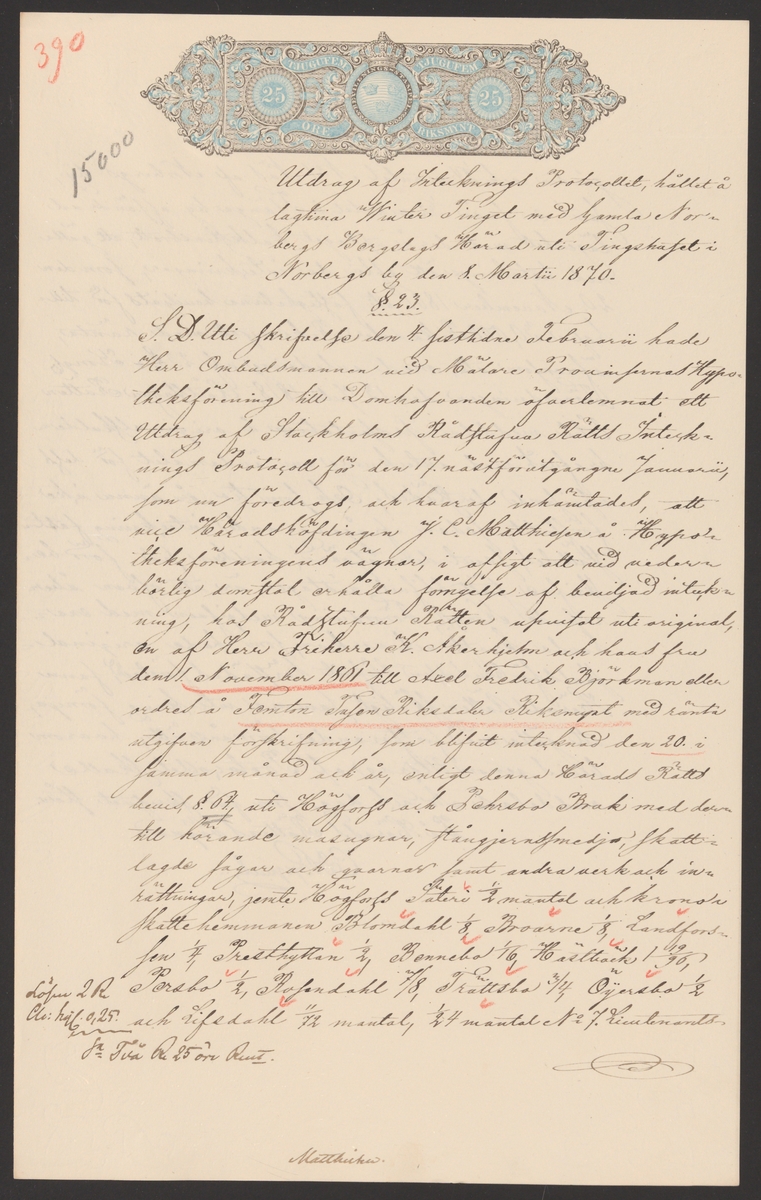 390
15000
TJUGUFEM TJUGUFEM
25 25
ÖRE RIKSMYNT
Utdrag af Intecknings Protocollet, hållet å
lagtima Winter Tinget med Gamla Nor-
bergs Bergslags Härad uti Tingshuset i
Norbergs by den 8. Martii 1870.
§. 23.
S. D. Uti skrifvelse den 4. sistlidne Februarii hade
Herr Ombudsmannen vid Mälare Provinsernas Hypo-
theksförening till Domhafvanden öfverlemnat ett
Utdrag af Stockholms Rådstufvu Rätts Inteck-
nings Protocoll för den 17. nästförutgångne Januarii,
som nu föredrogs, och hvaraf inhämtades, att
vice Häradshöfdingen J. C. Matthiesen å Hypo-
theksföreningens vägnar, i afsigt att vid veder-
börlig domstol erhålla förnyelse af beviljad inteck-
ning, hos Rådstufvu Rätten uppvisat uti original,
en af Herr Friherre K. Åkerhjelm och hans fru
den 1 November 1861 till Axel Fredrik Björkman eller
ordres å Femton Tusen Riksdaler Riksmynt med ränta
utgifven förskrifning, som blifvit intecknad den 20. i
samma månad och år, enligt denna Härads Rätts
bevis, §. 64, uti Högforss och Pehrsbo Bruk med der-
till hörande masugnar, stångjernssmedja, skatt-
lagde sågar och qvarnar samt andra verk och in-
rättningar, jemte Högforss Säteri 1/2 mantal och krono
skattehemmanen Blomdahl 1/8, Broarne 1/8, Landfors-
sen 1/4, Presthyttan 1/2, Bennebo 1/6, Hästbäck 1 19/96,
Persbo 1/2, Rosendahl 7/8, Trättsbo 3/4, Öijersbo 1/2
och Lifsdahl 11/72 mantal, 1/24 mantal No 7. Lieutenants-
Lösen 2 R
Cha: häf. 0,25.
Sa Två R 25 öre Rmt.
Matthiesen.